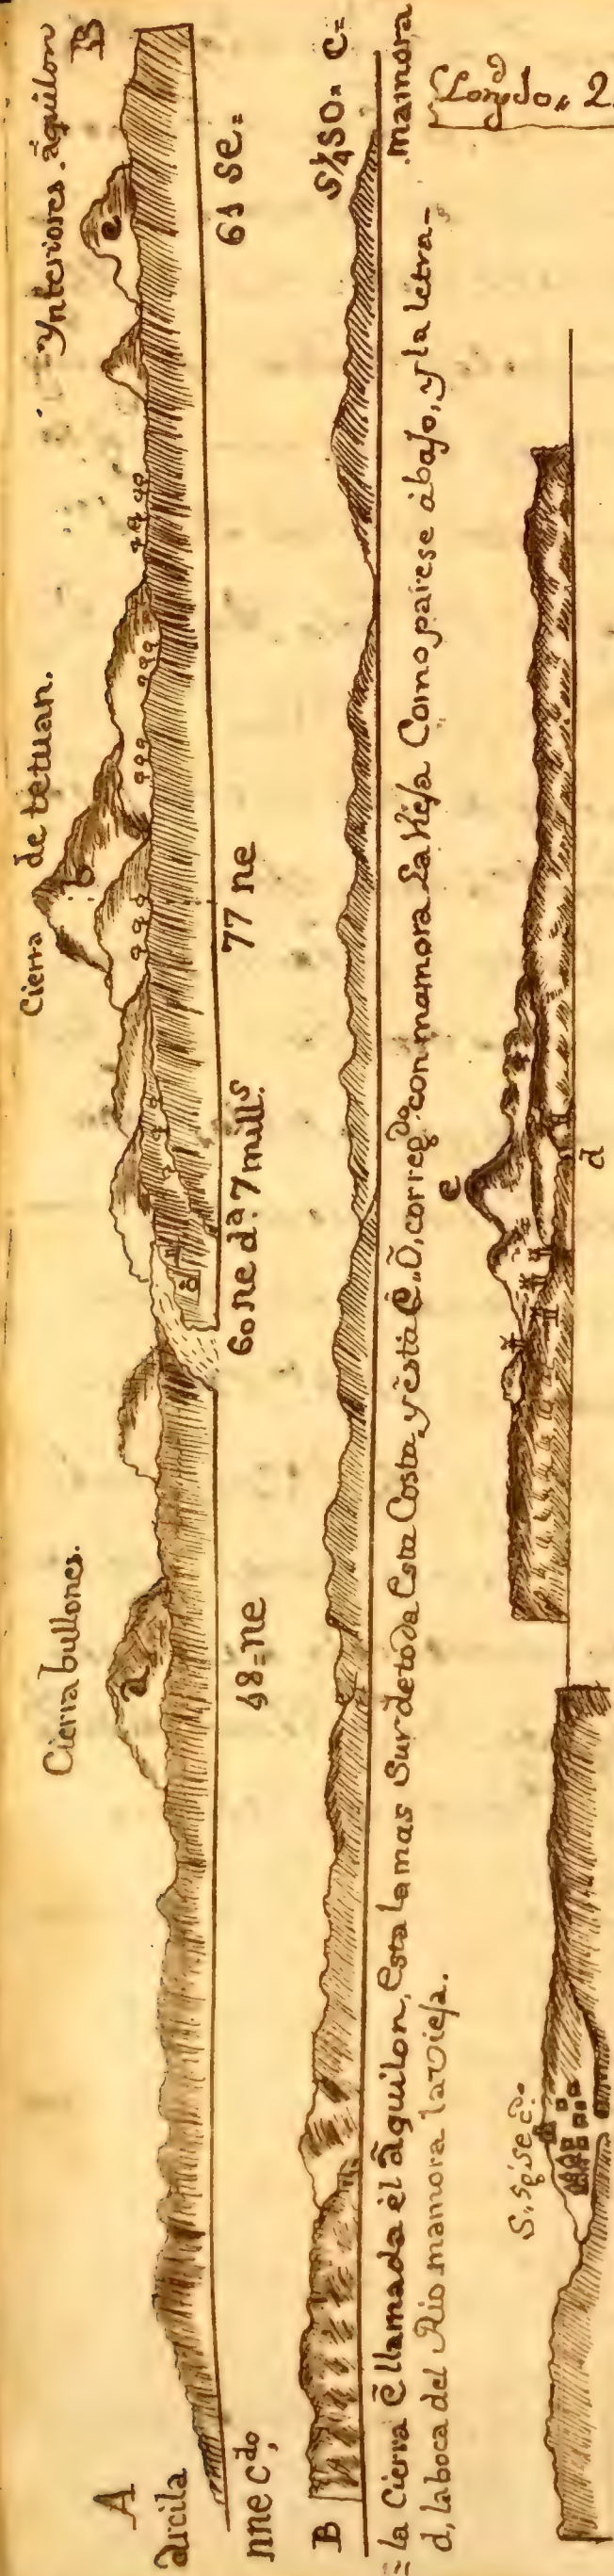 A
arcila
Cierra bullones.
Cierra de tetuan.
Ynteriores. aguilon
B
a
b
e
nne Cdo,
48=ne
60 ne da. 7 mills.
77 ne
61 se=
B
S¼SO= C=
mamora
= la Cierra e llamada el aguilon, Esta la mas Sur de toda Esta Costa, y esta C.,D, corregdo. con mamora La Vieja Como parese abajo, y la letra-
d, la boca del Rio mamora la vieja.
e
d
Longdo,, 2